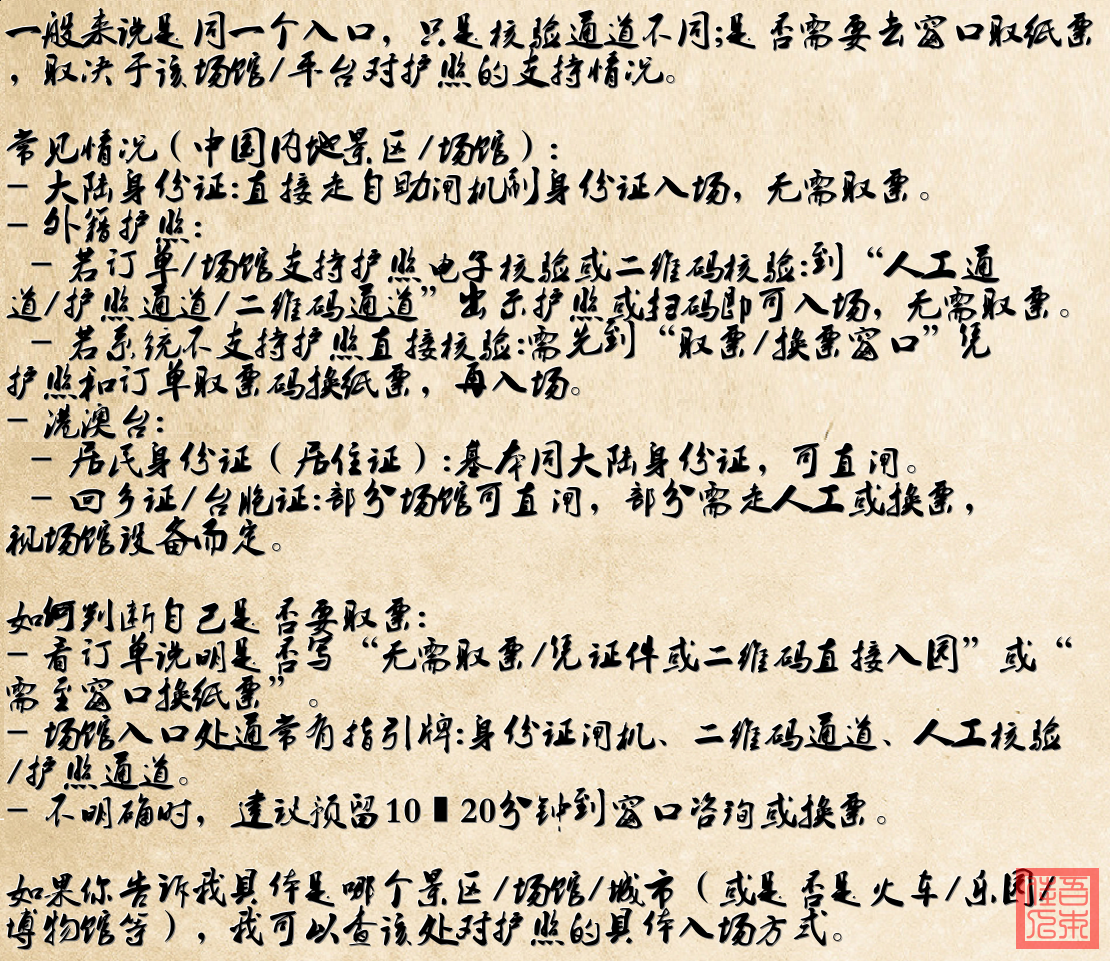 一般来说是同一个入口，只是核验通道不同;是否需要去窗口取纸票
，取决于该场馆/平台对护照的支持情况。
常见情况（中国内地景区/场馆）:
- 大陆身份证:直接走自助闸机刷身份证入场，无需取票。
- 外籍护照:
- 若订单/场馆支持护照电子核验或二维码核验:到“人工通
道/护照通道/二维码通道”出示护照或扫码即可入场，无需取票。
- 若系统不支持护照直接核验:需先到“取票/换票窗口”凭
护照和订单取票码换纸票，再入场。
- 港澳台:
- 居民身份证（居住证）:基本同大陆身份证，可直闸。
- 回乡证/台胞证:部分场馆可直闸，部分需走人工或换票，
视场馆设备而定。
如何判断自己是否要取票:
- 看订单说明是否写“无需取票/凭证件或二维码直接入园”或“
需至窗口换纸票”。
- 场馆入口处通常有指引牌:身份证闸机、二维码通道、人工核验
/护照通道。
- 不明确时，建议预留10▮20分钟到窗口咨询或换票。
如果你告诉我具体是哪个景区/场馆/城市（或是否是火车/乐园/
博物馆等），我可以查该处对护照的具体入场方式。